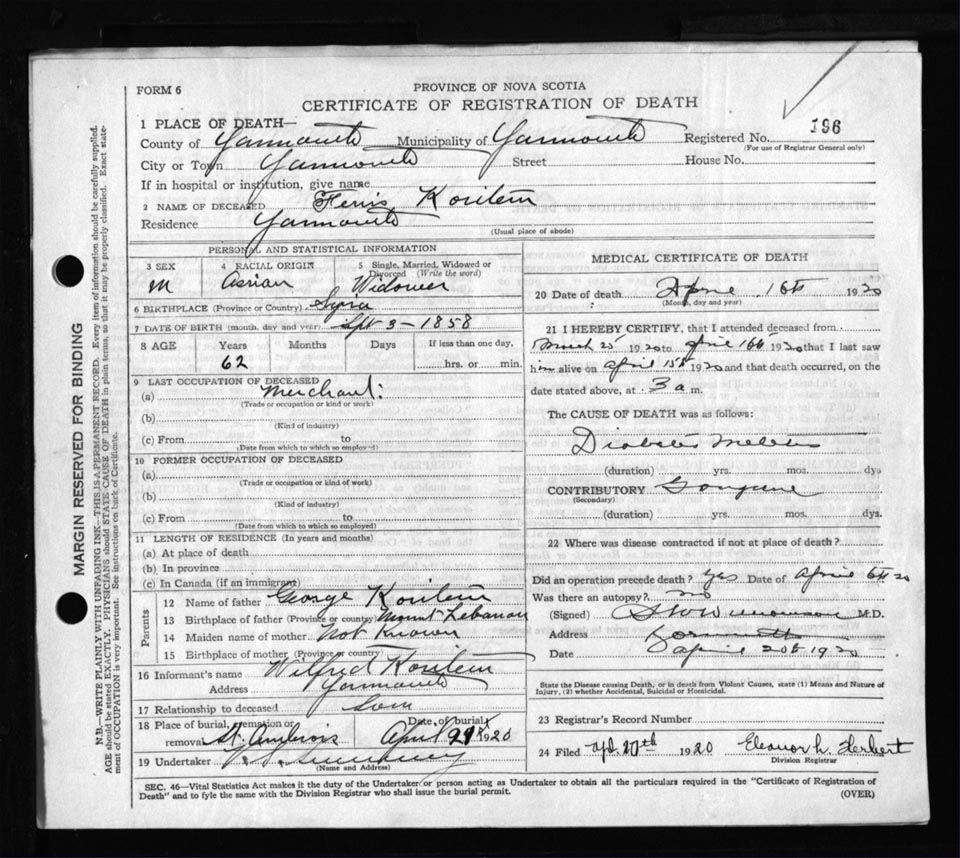 FORM 6
PROVINCE OF NOVA SCOTIA
CERTIFICATE OF REGISTRATION OF DEATH
1 PLACE OF DEATH—
County of Yarmouth Municipality of Yarmouth Registered No. 196
(For use of Registrar General only)
City or Town Yarmouth Street House No.
If in hospital or institution, give name
2 NAME OF DECEASED Ferris
Residence Yarmouth
(Usual place of abode)
PERSONAL AND STATISTICAL INFORMATION
3 SEX 4 RACIAL ORIGIN 5 Single, Married, Widowed or Divorced (Write the word)
M Widower
6 BIRTHPLACE (Province or Country) Syria
7 DATE OF BIRTH (month, day and year) Sept 3 - 1858
8 AGE Years Months Days If less than one day,
62 hrs. or min.
9 LAST OCCUPATION OF DECEASED
(a) Merchant
(Trade or occupation or kind of work)
(b)
(Kind of industry)
(c) From to
(Date from which to which so employed)
10 FORMER OCCUPATION OF DECEASED
(a)
(Trade or occupation or kind of work)
(b)
(Kind of industry)
(c) From to
(Date from which to which so employed)
11 LENGTH OF RESIDENCE (In years and months)
(a) At place of death
(b) In province
(c) In Canada (if an immigrant)
Parents
12 Name of father George
13 Birthplace of father (Province or country) Mount Lebanon
14 Maiden name of mother Not Known
15 Birthplace of mother (Province or country)
16 Informant's name Wilfred
Address Yarmouth
17 Relationship to deceased son
18 Place of burial, cremation or removal Date of burial
April 21 1920
19 Undertaker
(Name and Address)
MEDICAL CERTIFICATE OF DEATH
20 Date of death April 16th 1920
(Month, day and year)
21 I HEREBY CERTIFY, that I attended deceased from
March 25 1920 to April 16th 1920 that I last saw
him alive on April 15th 1920 and that death occurred, on the
date stated above, at 3 a m.
The CAUSE OF DEATH was as follows:
Diabetes
(duration) yrs. mos. dys
CONTRIBUTORY Gangrene
(Secondary)
(duration) yrs. mos. dys.
22 Where was disease contracted if not at place of death?
Did an operation precede death? Yes Date of April 6th 20
Was there an autopsy? No
(Signed) M.D.
Address Yarmouth
Date April 20th 1920
State the Disease causing Death, or in death from Violent Causes, state (1) Means and Nature of
Injury, (2) whether Accidental, Suicidal or Homicidal.
23 Registrar's Record Number
24 Filed 1920 Eleanor L. Herbert
Division Registrar
SEC. 46—Vital Statistics Act makes it the duty of the Undertaker or person acting as Undertaker to obtain all the particulars required in the "Certificate of Registration of
Death" and to fyle the same with the Division Registrar who shall issue the burial permit.
(OVER)
MARGIN RESERVED FOR BINDING
N.B.—WRITE PLAINLY WITH UNFADING INK—THIS IS A PERMANENT RECORD. Every item of information should be carefully supplied.
AGE should be stated EXACTLY. PHYSICIANS should STATE CAUSE OF DEATH in plain terms, so that it may be properly classified. Exact state-
ment of OCCUPATION is very important. See instructions on back of Certificate.